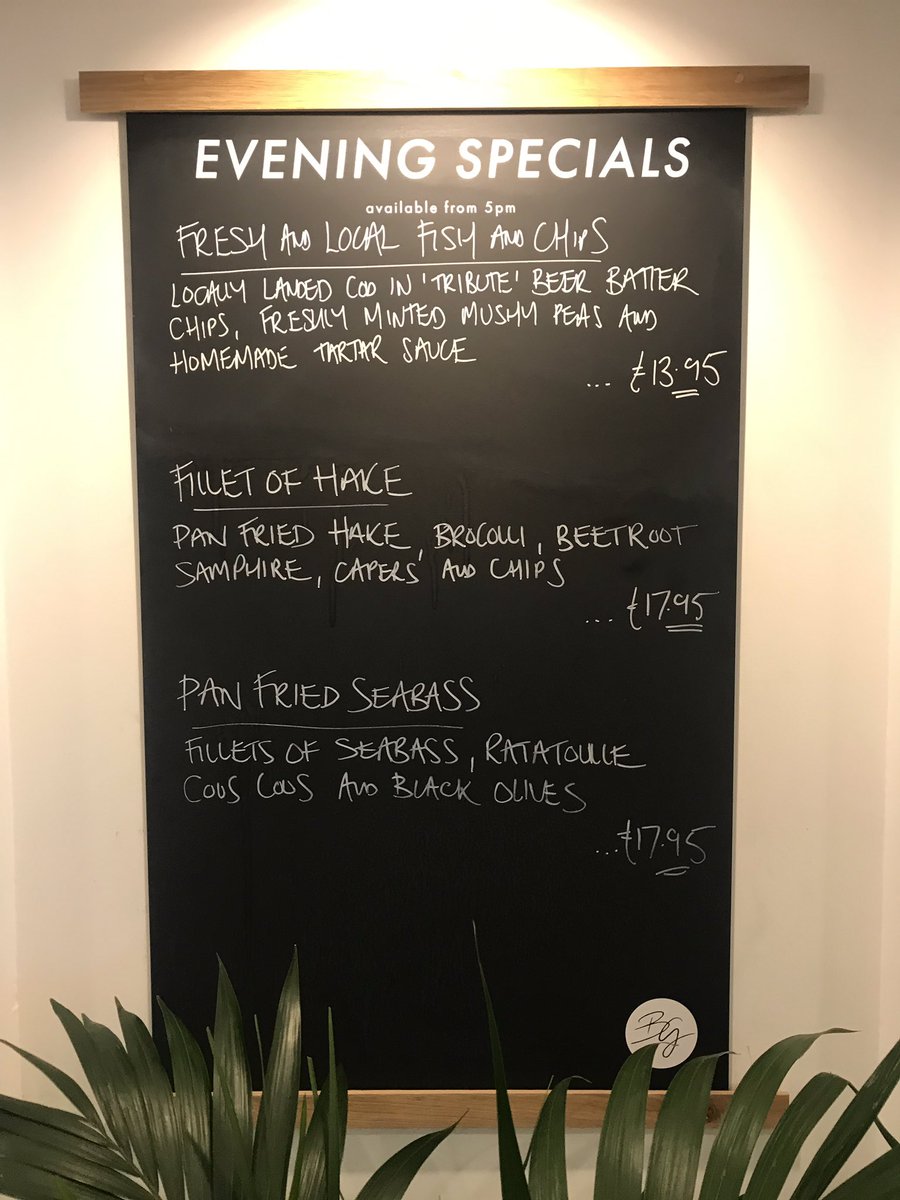 EVENING SPECIALS
available from 5pm
FRESH AND LOCAL FISH AND CHIPS
LOCALLY LANDED COD IN 'TRIBUTE' BEER BATTER
CHIPS, FRESHLY MINTED MUSHY PEAS AND
HOMEMADE TARTAR SAUCE
... £13.95
FILLET OF HAKE
PAN FRIED HAKE, BROCOLLI, BEETROOT
SAMPHIRE, CAPERS AND CHIPS
... £17.95
PAN FRIED SEABASS
FILLETS OF SEABASS, RATATOUILLE
COUS COUS AND BLACK OLIVES
...£17.95
BG